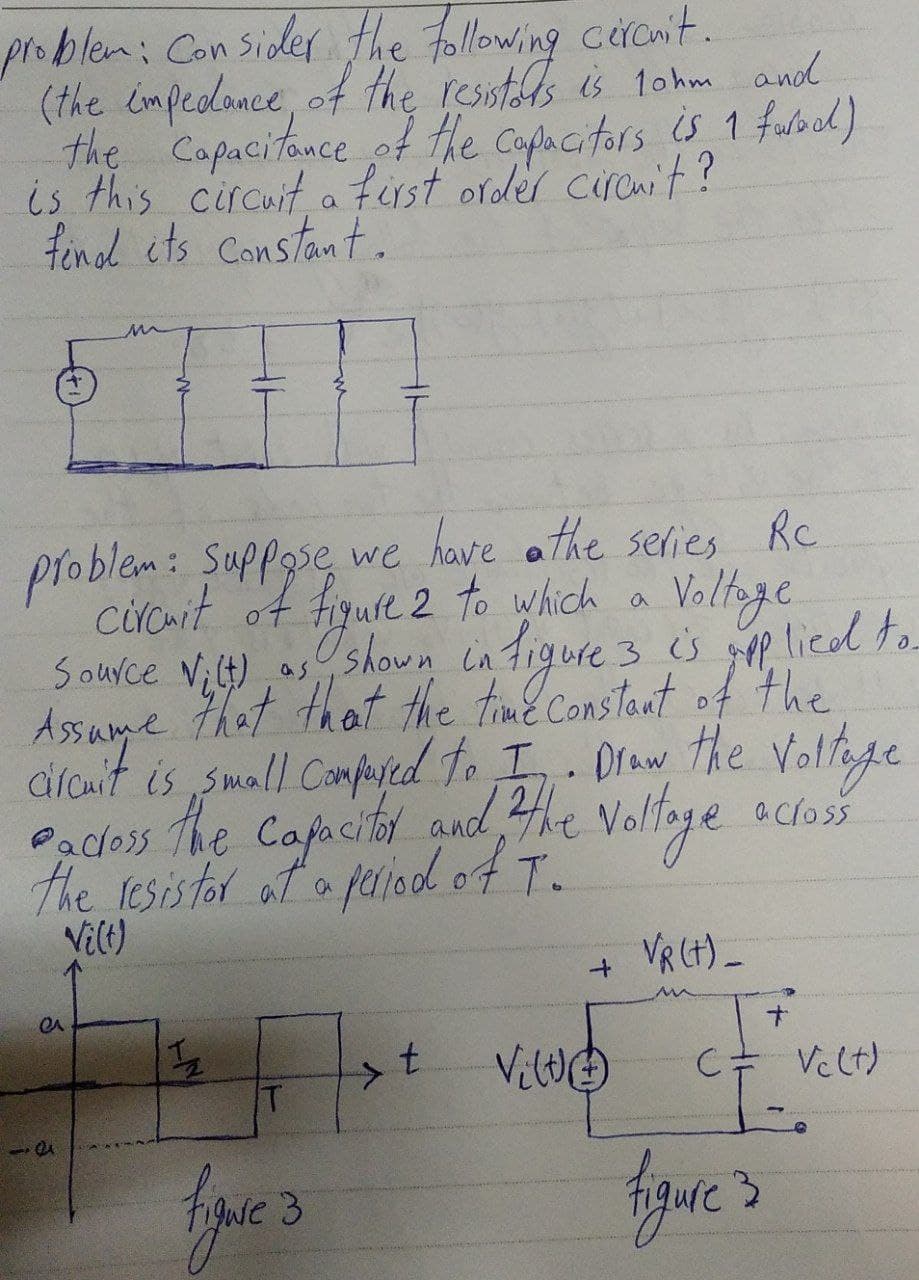 problem: Consider the following circuit.
(the impedance of the resistors is 1ohm and
the Capacitance of the Capacitors is 1 farad)
is this circuit a first order circuit?
find its constant.
+
-
problem: Suppose we have the series RC
circuit of figure 2 to which a Voltage
Source Vi(t) as shown in figure 3 is applied to.
Assume that that the time constant of the
circuit is small Compared to T/2. Draw the Voltage
across the Capacitor and the Voltage across
the resistor at a period of T.
Vi(t)
+ VR(t) -
a
T/2
T
t
Vi(t)
+
-
C
+
Vc(t)
-
-a
figure 3
figure 3